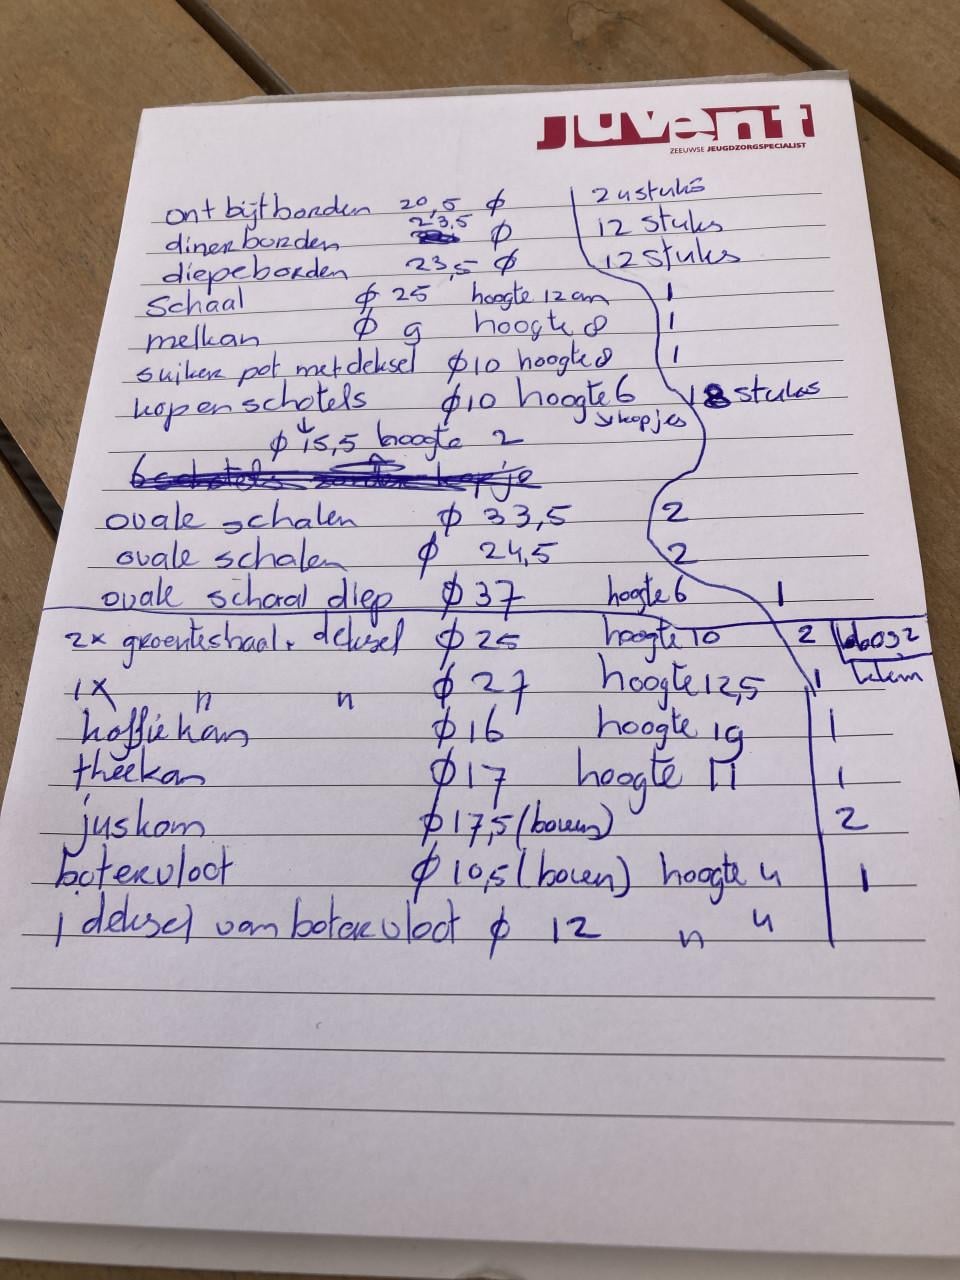 Juvent
ZEEUWSE JEUGDZORGSPECIALIST
ontbijtborden 20,5 ϕ 24 stuks
dinerborden 23,5 ϕ 12 stuks
diepeborden 23,5 ϕ 12 stuks
Schaal ϕ 25 hoogte 12 cm 1
melkan ϕ 9 hoogte 8 1
suiker pot met deksel ϕ10 hoogte 8 1
kop en schotels ϕ10 hoogte 6 18 stuks
↘ kopjes
ϕ 15,5 hoogte 2
ovale schalen ϕ 33,5 2
ovale schalen ϕ 24,5 2
ovale schaal diep ϕ 37 hoogte 6 1
2x groenteshaal + deksel ϕ 25 hoogte 10 2 doos 2
1x " " ϕ 27 hoogte 12,5 1
koffiekan ϕ 16 hoogte 19 1
theekan ϕ 17 hoogte 11 1
juskom ϕ 17,5 (boven) 2
botervloot ϕ 10,5 (boven) hoogte 4 1
1 deksel van botervloot ϕ 12 " 4